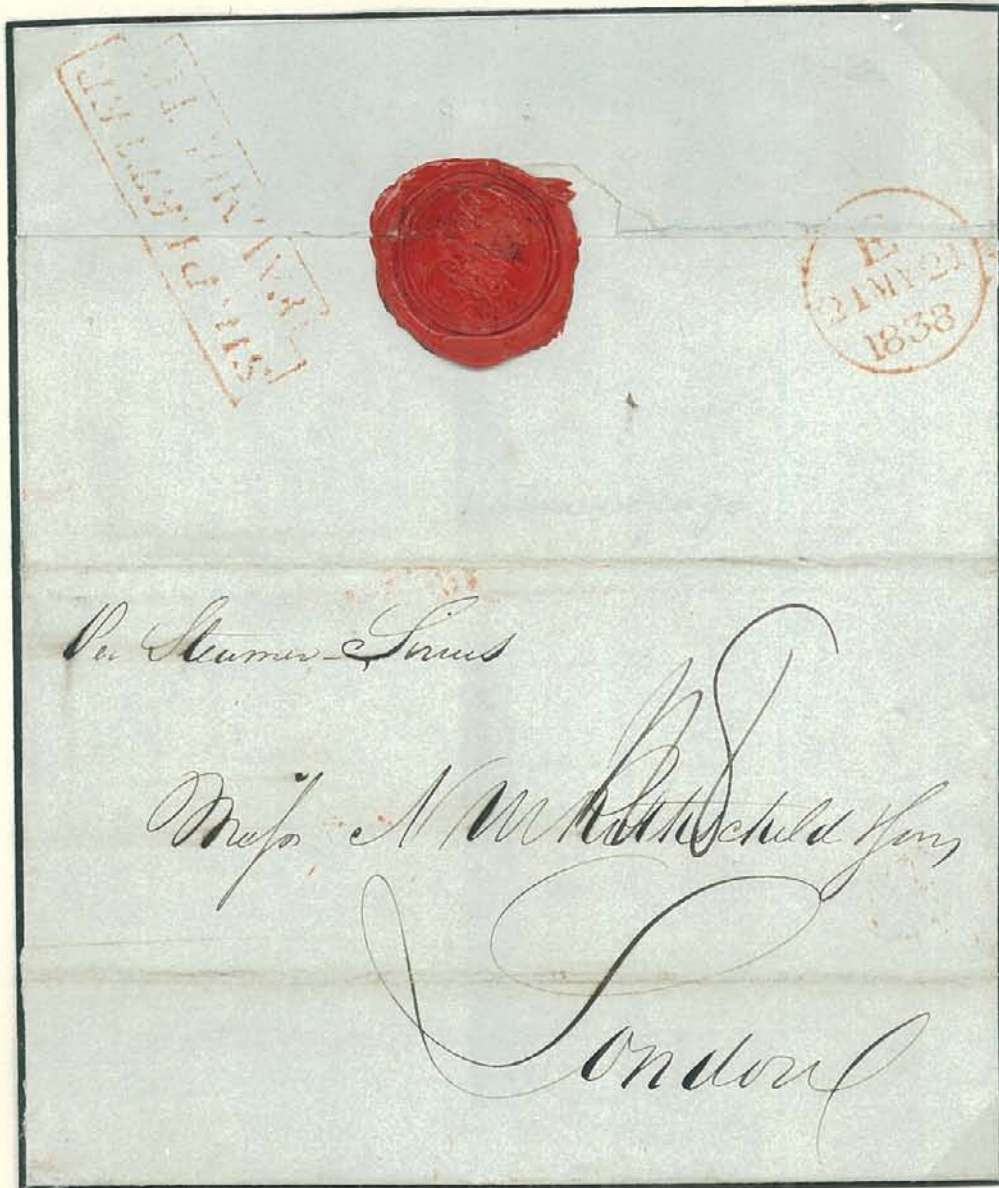 FALMOUTH
SHIP LETTER
E
21 MY 21
1838
Per Steamer Sirius
8
Messrs N M Rothschild & Sons
London